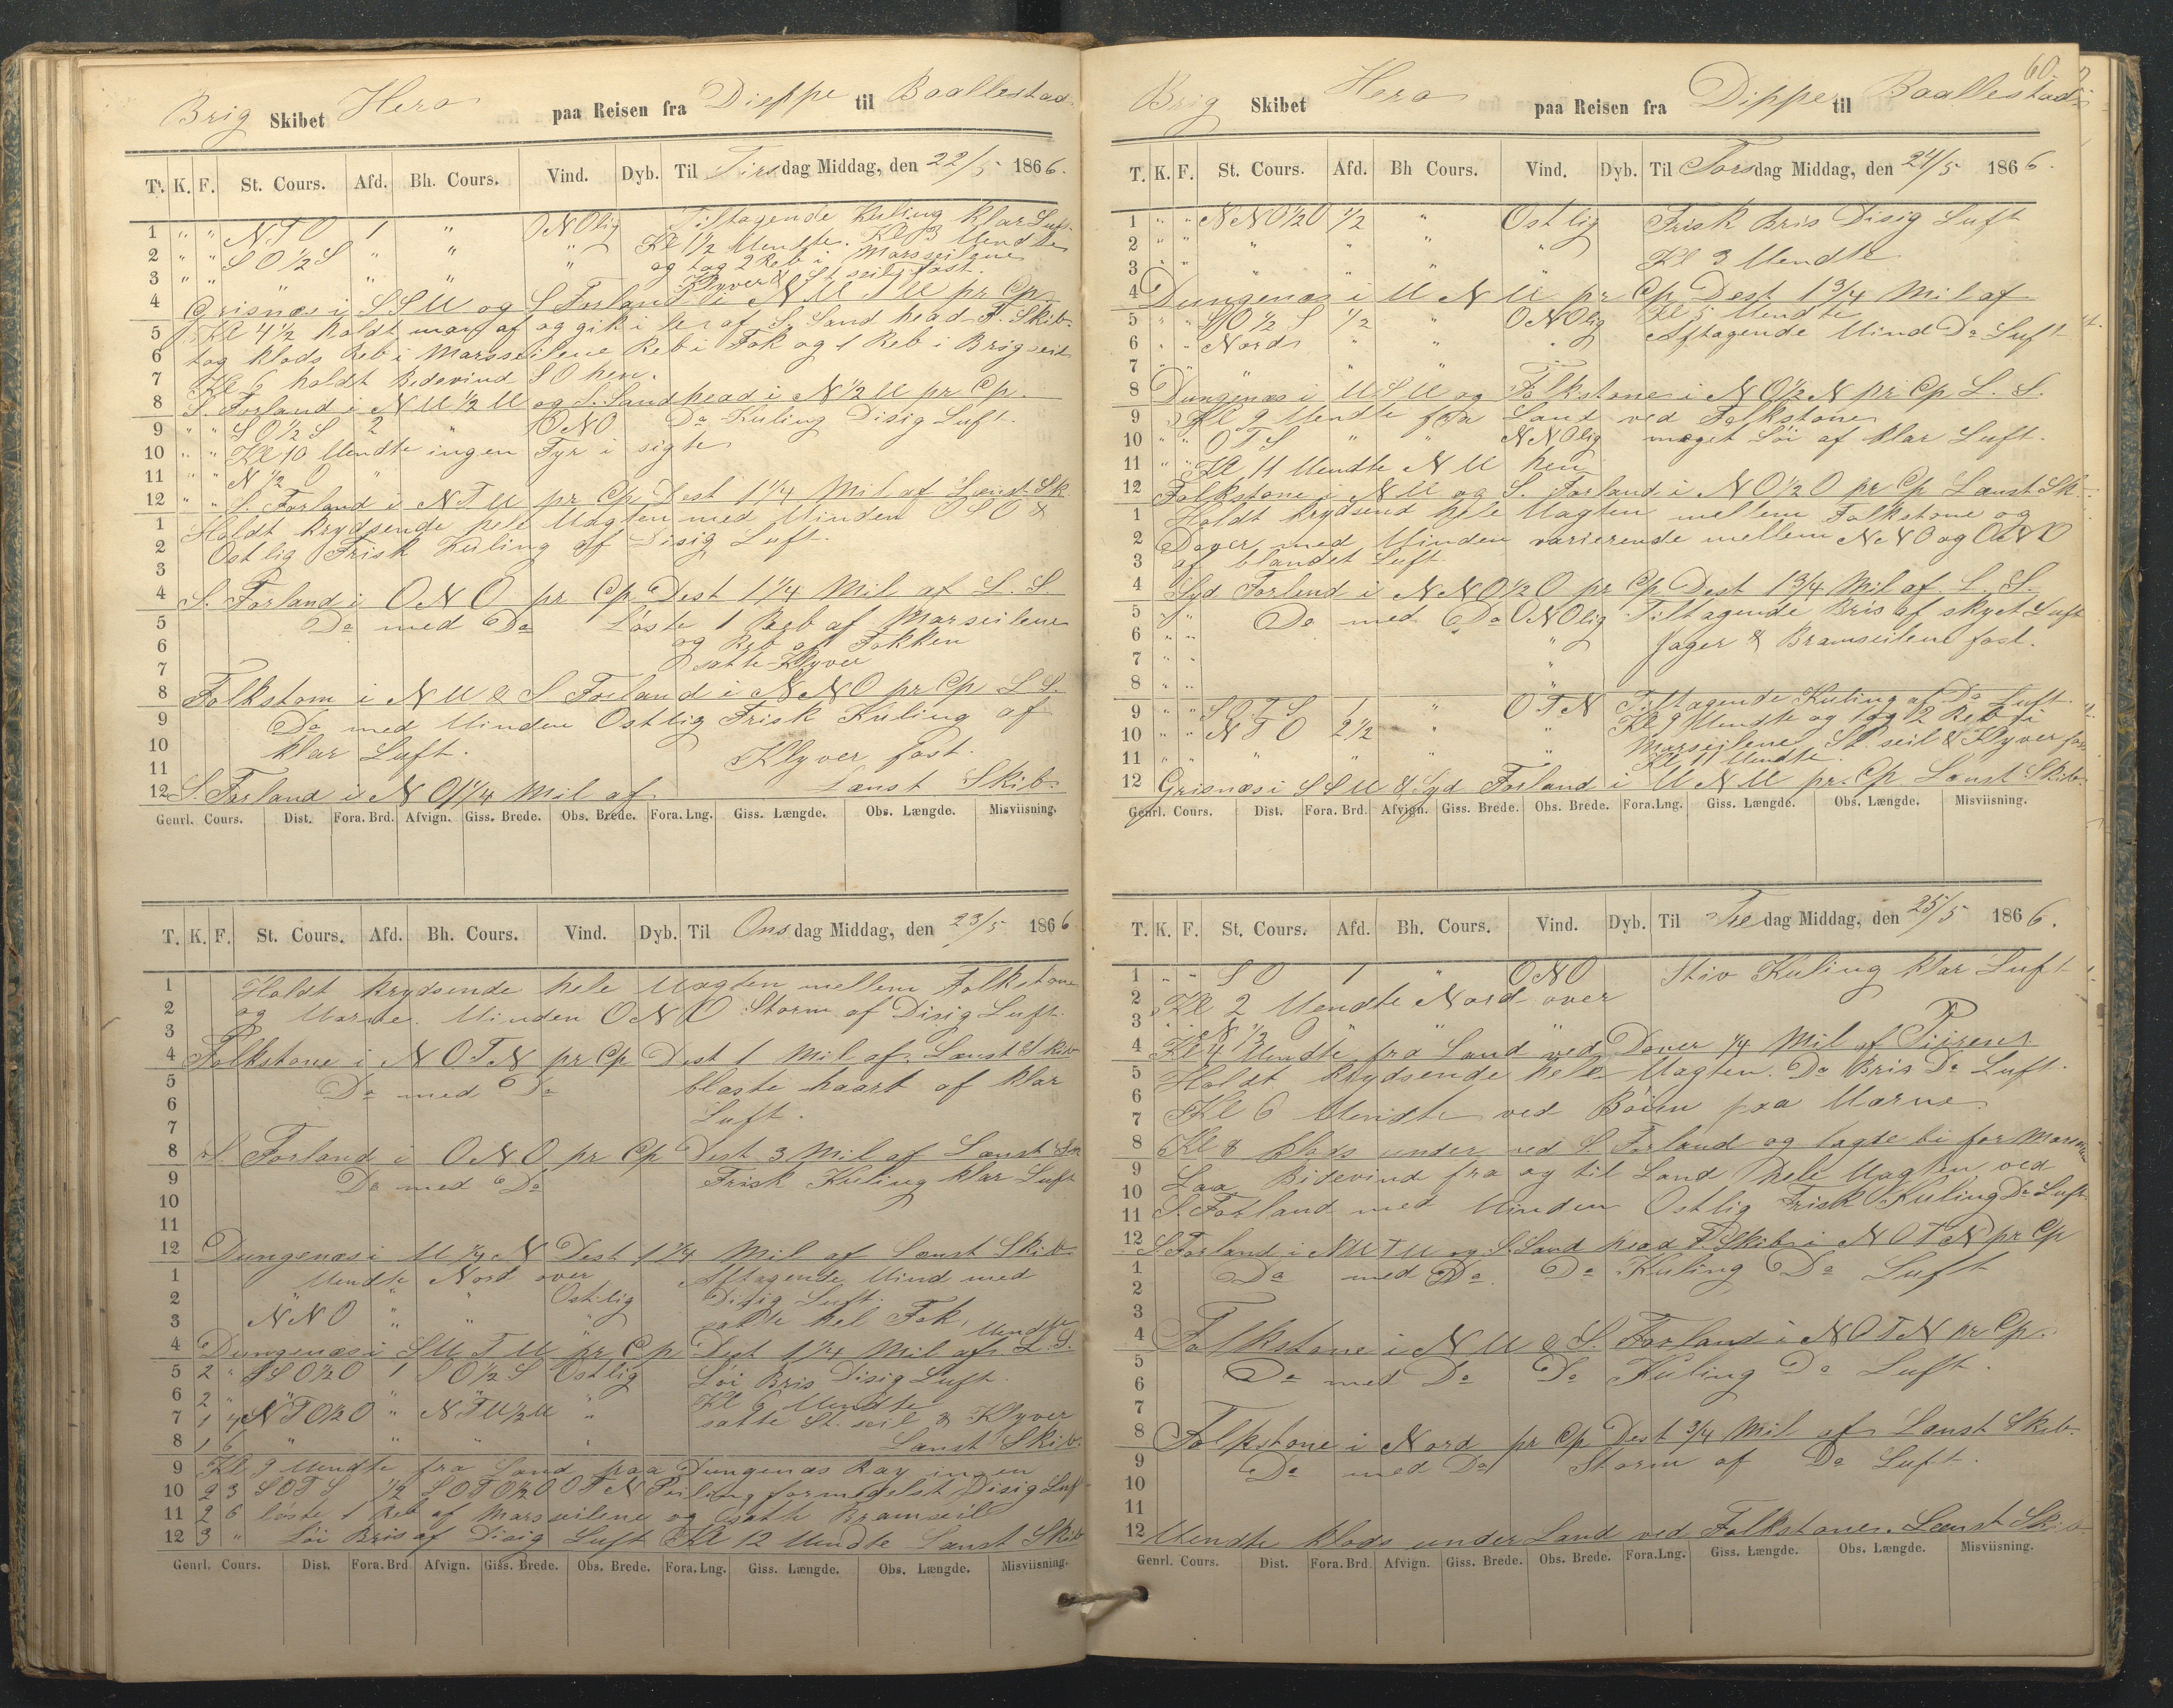 Brig Skibet Hera paa Reisen fra Dieppe til Baallestad
T. K. F. St. Cours. Afd. Bh. Cours. Vind. Dyb. Til Tirsdag Middag, den 22/5 1866.
1 " " NTO 1 " ONOlig Tiltagende Kuling klar Luft
2 " " SO1/2S " " " Kl 1/2 Vendte. Kl 3 Vendte
3 " " " " " og tog 2 Reb i Marsseilene
Klyver & St seil fast.
4 Grisnæs i SSV og S Forland i NVTV pr Cp
5 Kl 4 1/2 holdt af og gik i læ af S. Sand head F. Skib.
6 tog klods Reb i Marsseilene Reb i Fok og 1 Reb i Brigseil
7 Kl 6 holdt Bidevind SO hen.
8 S Forland i NV1/2V og S. Sandhead i N1/2V pr Cp.
9 " " SO1/2S 2 " ONO Do Kuling Disig Luft.
10 " " Kl 10 Vendte ingen Fyr i sigte
11 " " N1/2O "
12 " " S. Forland i NTV pr Cp Dest 1 1/4 Mil af Lænst Sk.
1 Holdt krydsende hele Vagten med Vinden OSO &
2 Ostlig Frisk Kuling af Disig Luft.
3
4 S. Forland i ONO pr Cp Dest 1 1/4 Mil af L. S
5 Do med Do Løste 1 Reb af Marseilene
6 og Reb af Fokken
7 satte Klyver
8 Folkstom i NV & S Forland i NNO pr Cp L S.
9 Do med Vinden Ostlig Frisk Kuling af
10 klar Luft. Klyver fast.
11
12 S. Forland i NO 1 1/4 Mil af Lænst Skib
Genrl. Cours. Dist. Fora. Brd. Afvign. Giss. Brede. Obs. Brede. Fora. Lng. Giss. Længde. Obs. Længde. Misviisning.
T. K. F. St. Cours. Afd. Bh. Cours. Vind. Dyb. Til Onsdag Middag, den 23/5 1866
1 Holdt krydsende hele Vagten mellem Folkstone
2 og Varne. Vinden ONO Storm af Disig Luft.
3
4 Folkstone i NOTN pr Cp Dest 1 Mil af. Lænst Skib
5 Do med Do blæste haart af klar
6 Luft.
7
8 S. Forland i ONO pr Cp Dest 3 Mil af Lænst Sk
9 Do med Do Frisk Kuling klar Luft
10
11
12 Dungenæs i V1/4N Dest 1 1/4 Mil af Lænst Skib
1 Vendte Nord over Aftagende Vind med
2 " " " Ostlig Disig Luft.
3 NNO " " " satte hel Fok, Vendte
4 Dungenæs i SVTV pr Cp Dest 1 1/4 Mil af L. S.
5 2 " SSO1/2O 1 SO1/2S Ostlig Løi Bris Disig Luft.
6 2 " " " " " Kl 6 Vendte
7 1 4 NTO1/2O " NTV1/2V " satte St. seil & Klyver
8 1 6 " " " " Lænst Skib.
9 Kl 9 Vendte fra Land paa Dungenæs Ray ingen
10 2 3 SOTS 1/2 SOTO1/2O OTN Peiling formedelst Disig Luft
11 2 6 løste 1 Reb af Marsseilene og satte Bramseil
12 3 " Løi Bris af Disig Luft Kl 12 Vendte Lænst Skib
Genrl. Cours. Dist. Fora. Brd Afvign. Giss. Brede. Obs. Brede. Fora. Lng. Giss. Længde. Obs. Længde. Misviisning.
60.
Brig Skibet Hera paa Reisen fra Dippe til Baallestad
T. K. F. St. Cours. Afd. Bh Cours. Vind. Dyb. Til Torsdag Middag, den 24/5 1866.
1 " " NNO1/2O 1/2 " Ostlig Frisk Bris Disig Luft
2 " " " " " "
3 " " " " " " Kl 3 Vendte
4 Dungenæs i VNV pr Cp Dest 1 3/4 Mil af
5 " " SO1/2S 1/2 " ONOlig Kl 5 Vendte
6 " " Nord " " " Aftagende Vind Do Luft
7 " " " "
8 Dungenæs i VSV og Folkstone i NO1/2N pr Cp L. S.
9 Kl 9 Vendte fra Land ved Folkstone
10 " " OTS " " NNOlig meget Løi af klar Luft.
11 " " Kl 11 Vendte NV hen
12 Folkstone i NV og S. Forland i NO1/2O pr Cp Lænst Sk.
1 Holdt krydsend hele Vagten mellem Folkstone og
2 Dover med Vinden varierende mellem NNO og ONO
3 af blandet Luft.
4 Syd Forland i NNO1/2O pr Cp Dest 1 3/4 Mil af L. S.
5 " " Do med Do ONOlig Tiltagende Bris af skyet Luft
6 " " " Jager & Bramseilene fast.
7 " " "
8 " " "
9 " " SOTS 1 " OTN Tiltagende Kuling af Do Luft
10 " " NTO 2 1/2 " " Kl 9 Vendte og tog 2 Reb i
11 " " " " " " Marseilene St. seil & Klyver fast
Kl 11 Vendte
12 Grisnæs i SSV & Syd Forland i VNV pr. Cp Lænst Skib.
Genrl. Cours. Dist. Fora. Brd. Afvign. Giss. Brede. Obs. Brede. Fora. Lng. Giss. Længde. Obs. Længde. Misviisning.
T. K. F. St. Cours. Afd. Bh. Cours. Vind. Dyb. Til Fredag Middag, den 25/5 1866.
1 " " SO 1 " ONO Stiv Kuling klar Luft
2 Kl 2 Vendte Nord over
3 " " N1/2O " " "
4 Kl 4 Vendte fra Land ved Dover 1/4 Mil af Piirens
5 Holdt krydsende hele Vagten. Do Bris Do Luft.
6 Kl 6 Vendte ved Bøien paa Varne
7
8 Kl 8 klods under ved S. Forland og lagde bi for Mars
9 Laa Bidevind fra og til Land hele Vagten ved
10 S. Forland med Vinden Ostlig Frisk Kuling Do Luft
11
12 S. Forland i NVTV og S. Sand head F. Skib i NOTN pr Cp
1 Do med Do. Do Kuling Do Luft
2
3
4 Folkstone i NV & S. Forland i NOTN pr Cp.
5 Do med Do Do Kuling Do Luft.
6
7
8 Folkstone i Nord pr Cp Dest 3/4 Mil af Lænst Skib.
9 Do med Do Storm af Do Luft.
10
11
12 Vendte klods under Land ved Folkstone. Lænst Skib
Genrl. Cours. Dist. Fora. Brd Afvign. Giss. Brede. Obs. Brede. Fora. Lng. Giss. Længde. Obs. Længde. Misviisning.